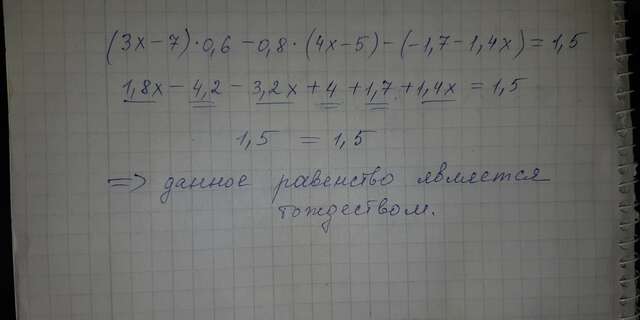 (3x-7)·0,6-0,8·(4x-5)-(-1,7-1,4x)=1,5
1,8x-4,2-3,2x+4+1,7+1,4x=1,5
1,5=1,5
=> данное равенство является
тождеством.